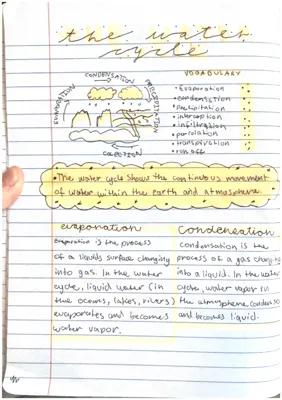 the water
cycle
CONDENSATION
PRECIPITATION
EVAPORATION
COLLECTION
VOCABULARY
• Evaporation
• condensation
• Precipitation
• interception
• infiltration
• percolation
• transpiration
• run off
• The water cycle shows the continuous movement
of water within the earth and atmosphere.
evaporation
Evaporation is the process
of a liquids surface changing
into gas. In the water
cycle, liquid water (in
the oceans, lakes, rivers)
evaporates and becomes
water vapor.
Condensation
condensation is the
process of a gas changing
into a liquid. In the water
cycle, water vapor in
the atmosphere condenses
and becomes liquid.